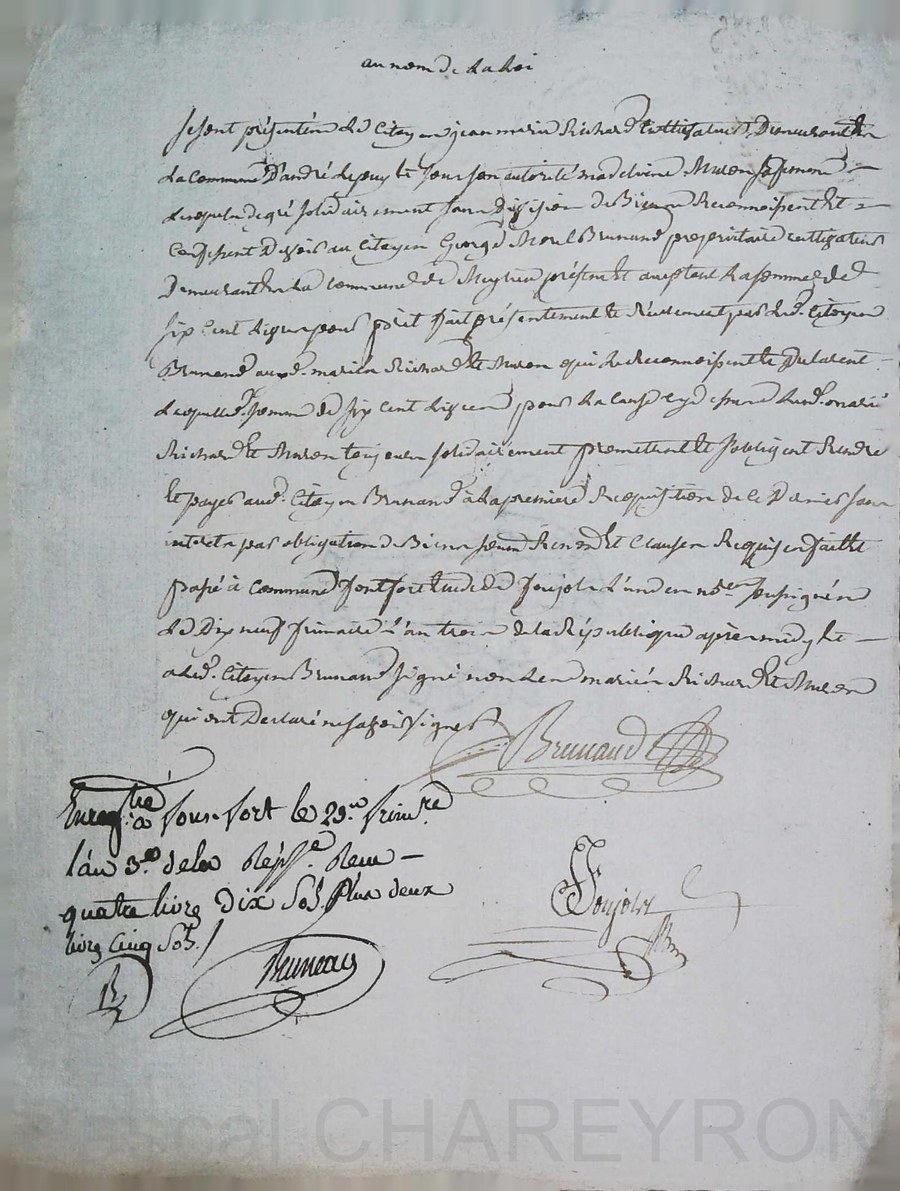 au nom de la loi
se sont présentés le Citoyen jean marie Richard Cultivateur Demeurant en
La commune D'andré Lepuy et sous son autorité madeleine Muron sa femme
Lesquels de gré solidairement sans Division de Biens Reconnoissent et
Confessent Devoir au Citoyen George Brunand propriétaire cultivateur
Demeurant en La commune de present acceptant La somme de
six cent livres pour prêt fait présentement et Réellement par led. Citoyen
Brunand aux d. mariés Richard et Muron qui le reconnoissent et Declarent
Laquelle d. somme de six cent livres pour La cause cy dessus Lesd. mariés
Richard et Muron toujours solidairement promettent et sobligent Rendre
et payer aud. Citoyen Brunand à La premiere Requisition de ce Dernier sans
interets par obligation de Biens Renond. et Clauses Requises fait et
passé à commune fontfort étude de Soujols L'un des nores. soussignés
Le Dix neuf frimaire L'an trois de la République après midy et
a led. Citoyen Brunand signé non les mariés Richard et Muron
qui ont Déclaré ne savoir signer
Brunand
Enregistré à fonsfort le 29. frimre.
l'an 3e. de la Repe. Reçu
quatre livres Dix Sols. Plus deux
livres Cinq Sols.
Soujols
Bruneau
Pascal CHAREYRON